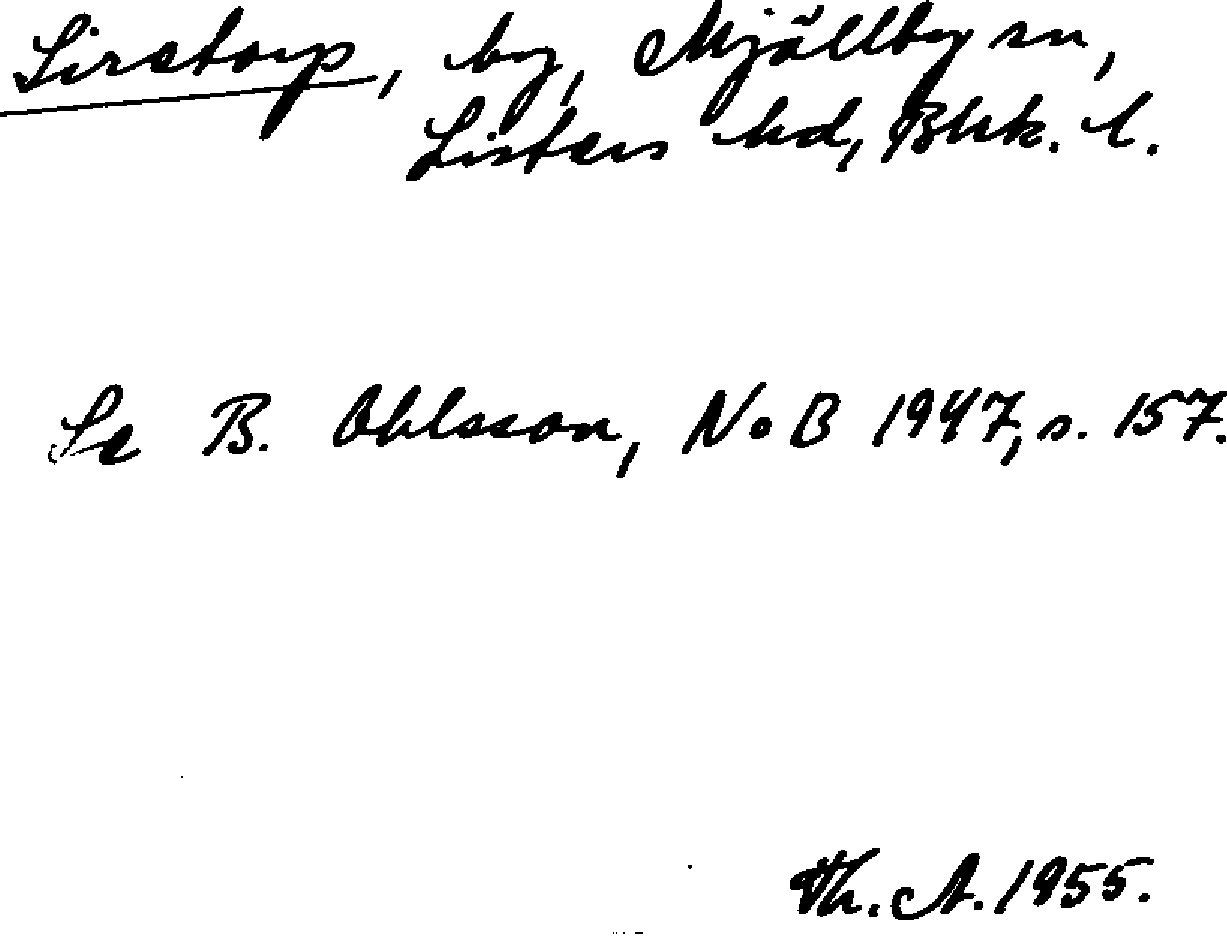 Siretorp, by, Mjällby sn,
Listers hd, Blek. l.
Se B. Ohlsson, NoB 1947, s. 157.
Th. A. 1955.